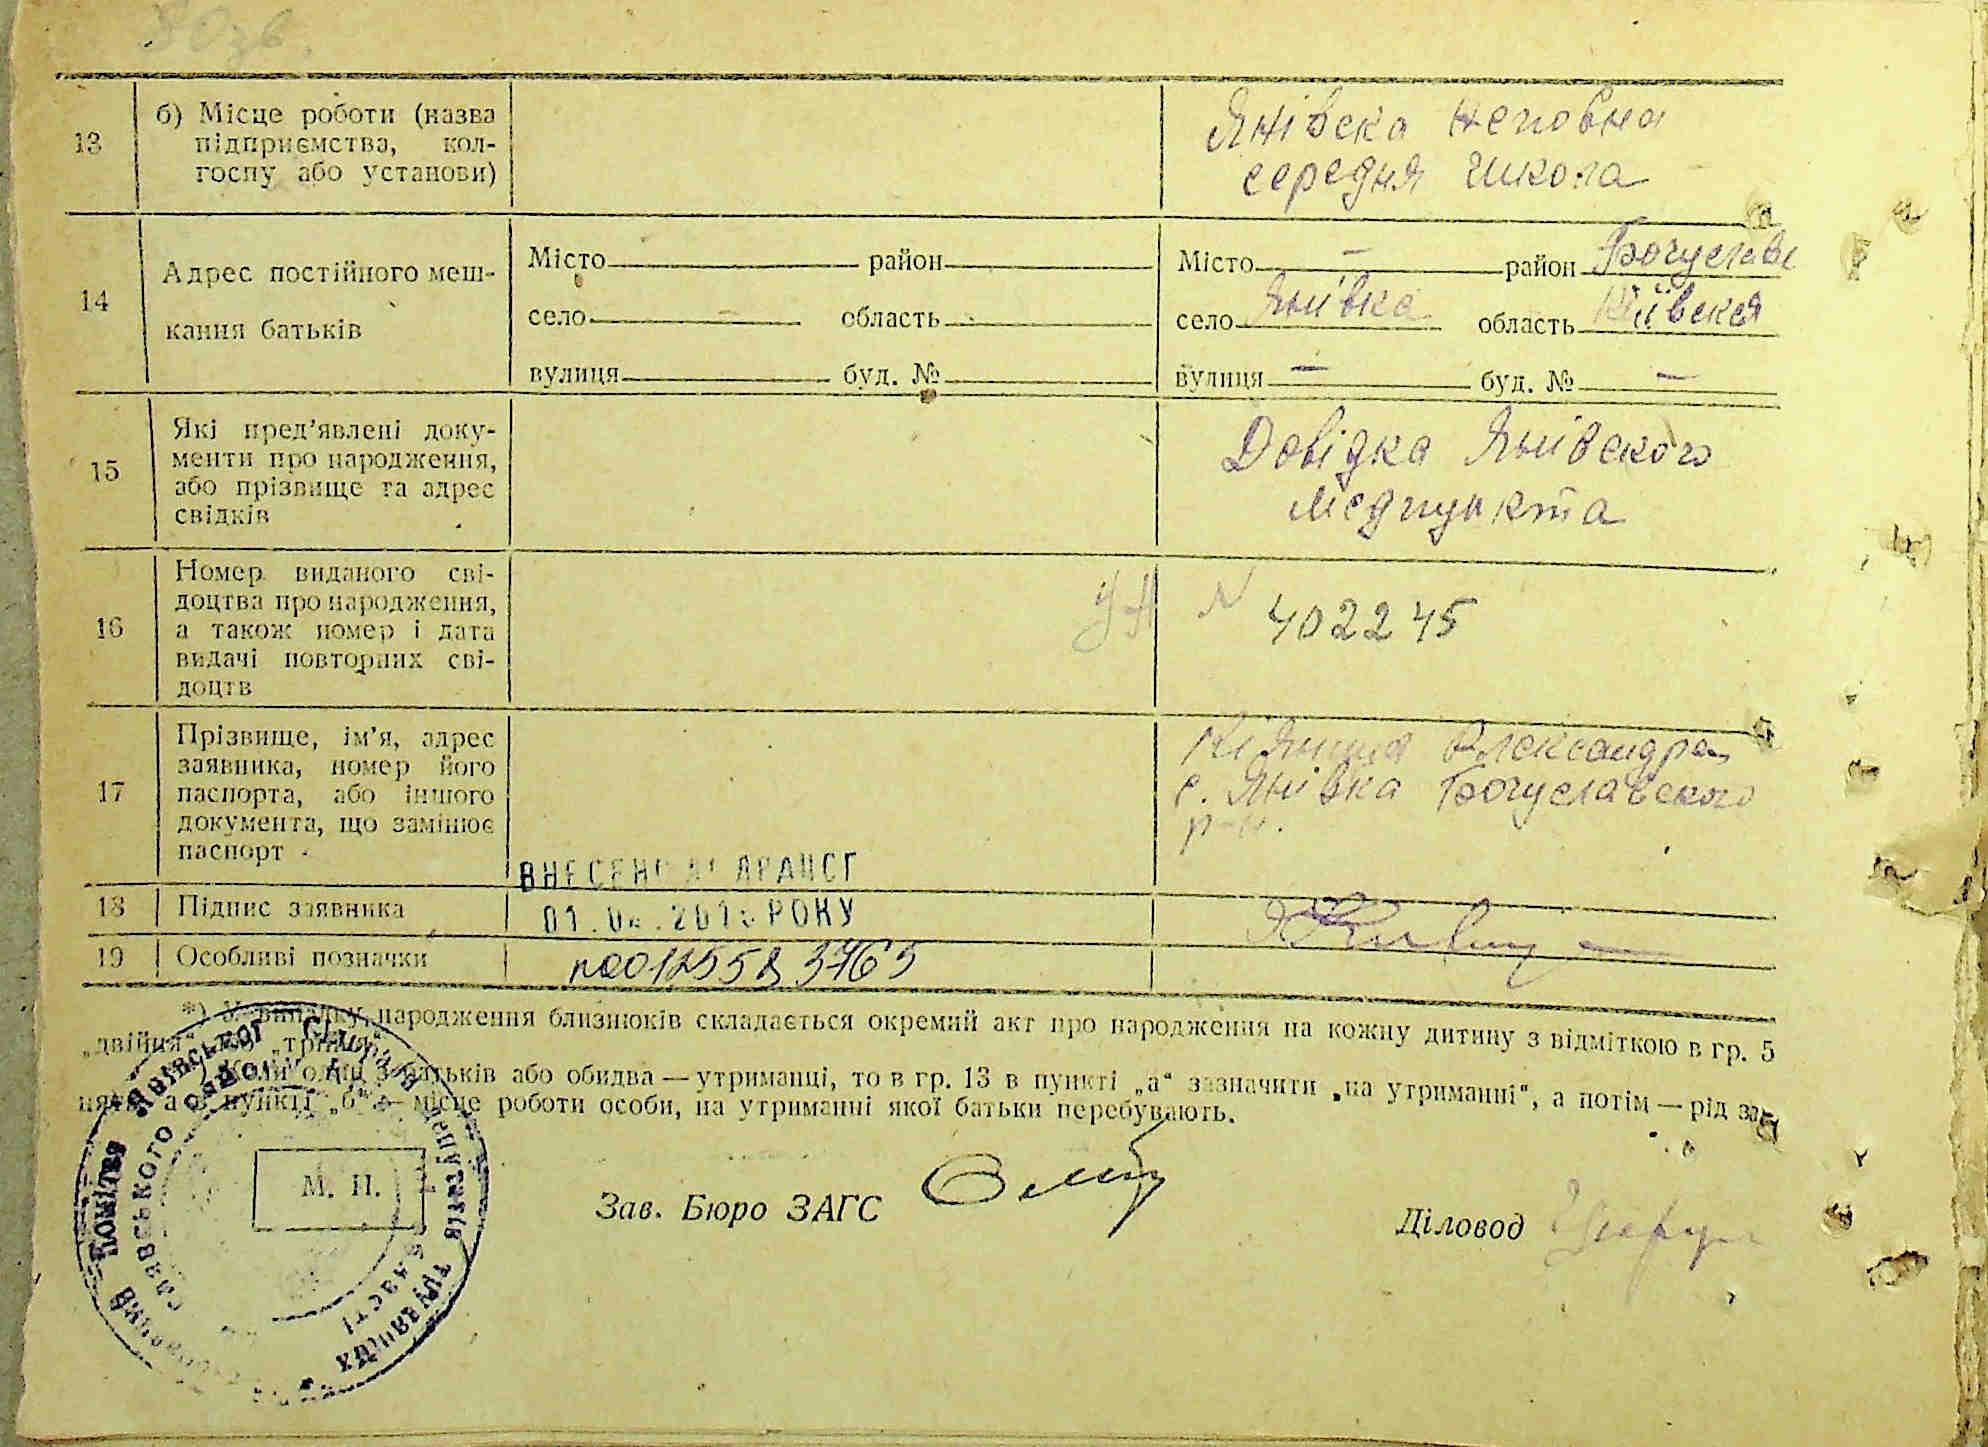 13
б) Місце роботи (назва
підприємства, кол-
госпу або установи)
Янівска неповна
середня школа
14
Адрес постійного меш-
кання батьків
Місто район
село область
вулиця буд. №
Місто — район Богуславс
село Янівка область Київская
вулиця — буд. № —
15
Які пред'явлені доку-
менти про народження,
або прізвище та адрес
свідків
Довідка Янівского
медпункта
16
Номер виданого сві-
доцтва про народження,
а також номер і дата
видачі повторних сві-
доцтв
УН N 402245
17
Прізвище, ім'я, адрес
заявника, номер його
паспорта, або іншого
документа, що замінює
паспорт
Александра
с. Янівка Богуславского
р-н.
ВНЕСЕНО ДРАЦСГ
18 Підпис заявника
РОКУ
19 Особливі позначки
*) У випадку народження близнюків складається окремий акт про народження на кожну дитину з відміткою в гр. 5
„двійня" „трійня"
Коли один з батьків або обидва — утриманці, то в гр. 13 в пункті „а" зазначити „на утриманні", а потім — рід за-
няття, а в пункті „б" — місце роботи особи, на утриманні якої батьки перебувають.
М. П.
Зав. Бюро ЗАГС
Діловод